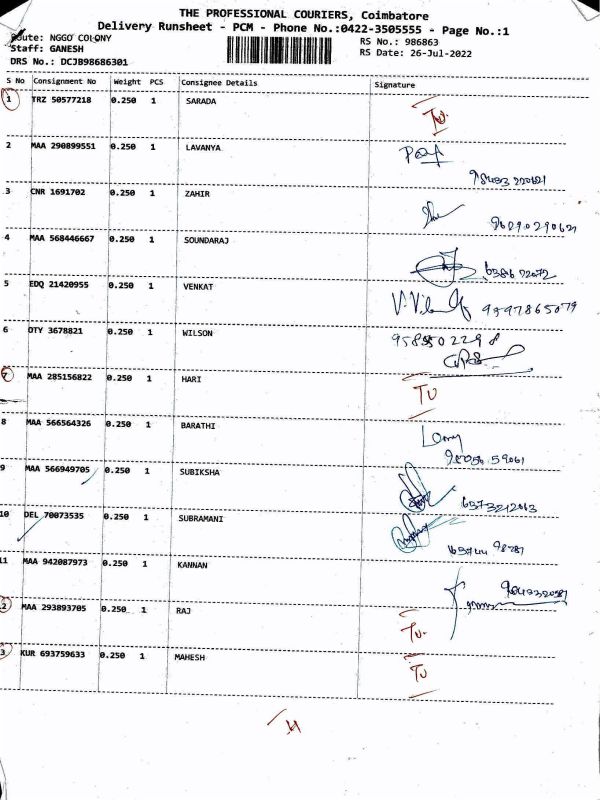 THE PROFESSIONAL COURIERS, Coimbatore
Delivery Runsheet - PCM - Phone No.:0422-3505555 - Page No.:1
Route: NGGO COLONY
RS No.: 986863
Staff: GANESH
RS Date: 26-Jul-2022
DRS No.: DCJB98686301
S No Consignment No Weight PCS Consignee Details Signature
1 TRZ 50577218 0.250 1 SARADA
2 MAA 290899551 0.250 1 LAVANYA
3 CNR 1691702 0.250 1 ZAHIR
4 MAA 568446667 0.250 1 SOUNDARAJ
5 EDQ 21420955 0.250 1 VENKAT 9597865079
6 OTY 3678821 0.250 1 WILSON
7 MAA 285156822 0.250 1 HARI TU
8 MAA 566564326 0.250 1 BARATHI
9 MAA 566949705 0.250 1 SUBIKSHA
10 DEL 70073535 0.250 1 SUBRAMANI
11 MAA 942087973 0.250 1 KANNAN
2 MAA 293893705 0.250 1 RAJ TU
3 KUR 693759633 0.250 1 MAHESH TU